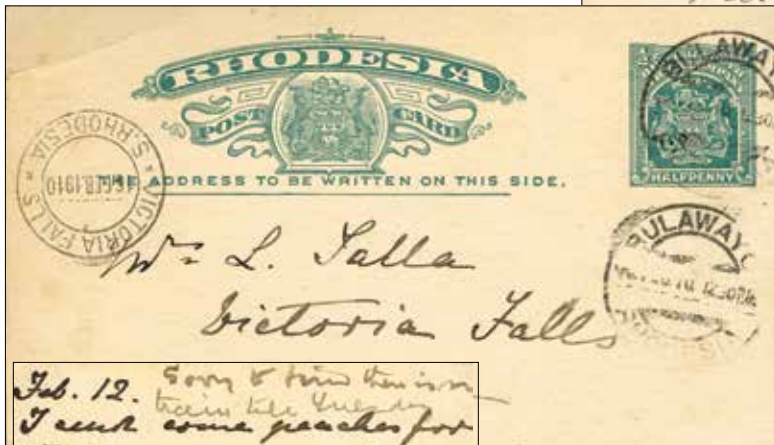 RHODESIA
POST CARD
THE ADDRESS TO BE WRITTEN ON THIS SIDE.
HALFPENNY
BULAWAY
VICTORIA FALLS
S. RHODESIA
16 FEB. 1910
BULAWAYO
L. Salla
Victoria Falls
Feb. 12.
Sorry to find there is no
train till Tuesday
I send some peaches for